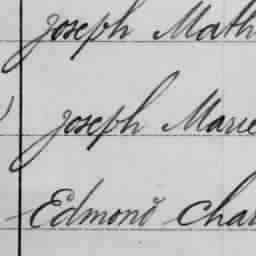 Joseph Math
Joseph Marie
Edmond Cha